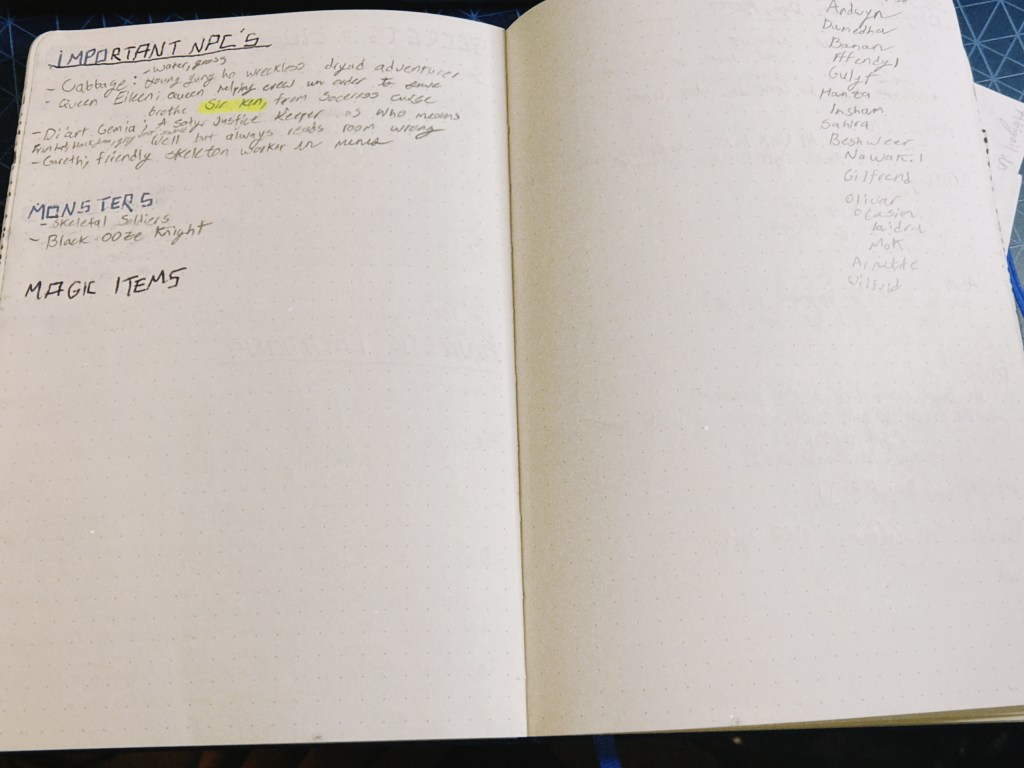 IMPORTANT NPC'S
- water, grass
- Cabbage: Young gung ho wreckless dryad adventurer
- Queen Eileen: Queen helping crew in order to save
brothe Sir Ken, from Soceress curse
- Di'art Gemia; A Satyr Justice Keeper as who means
well but always reads room wrong
- Gareth; friendly skeleton worker in mines
MONSTERS
- Skeletal Soldiers
- Black OOZE Knight
MAGIC ITEMS
Andwyn
Dumedha
Banan
Affendyl
Gulyf
Hamza
Insham
Sahra
Beshweer
Nawak.l
Gilfrend
Olivar
Mok